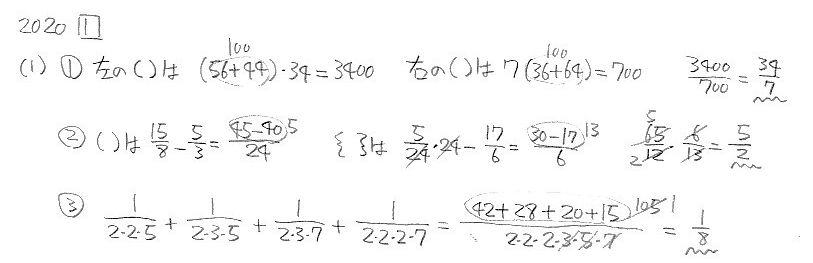 2020 1
(1) ① 左の( )は (56+44)・34=3400 100 右の( )は 7(36+64)=700 100 3400/700 = 34/7
② ( )は 15/8 - 5/3 = (45-40)/24 5 { }は 5/24・24 - 17/6 = (30-17)/6 13 65/12・6/13 = 5/2 5 2
③ 1/(2・2・5) + 1/(2・3・5) + 1/(2・3・7) + 1/(2・2・2・7) = (42+28+20+15)/(2・2・2・3・5・7) 105 1 = 1/8